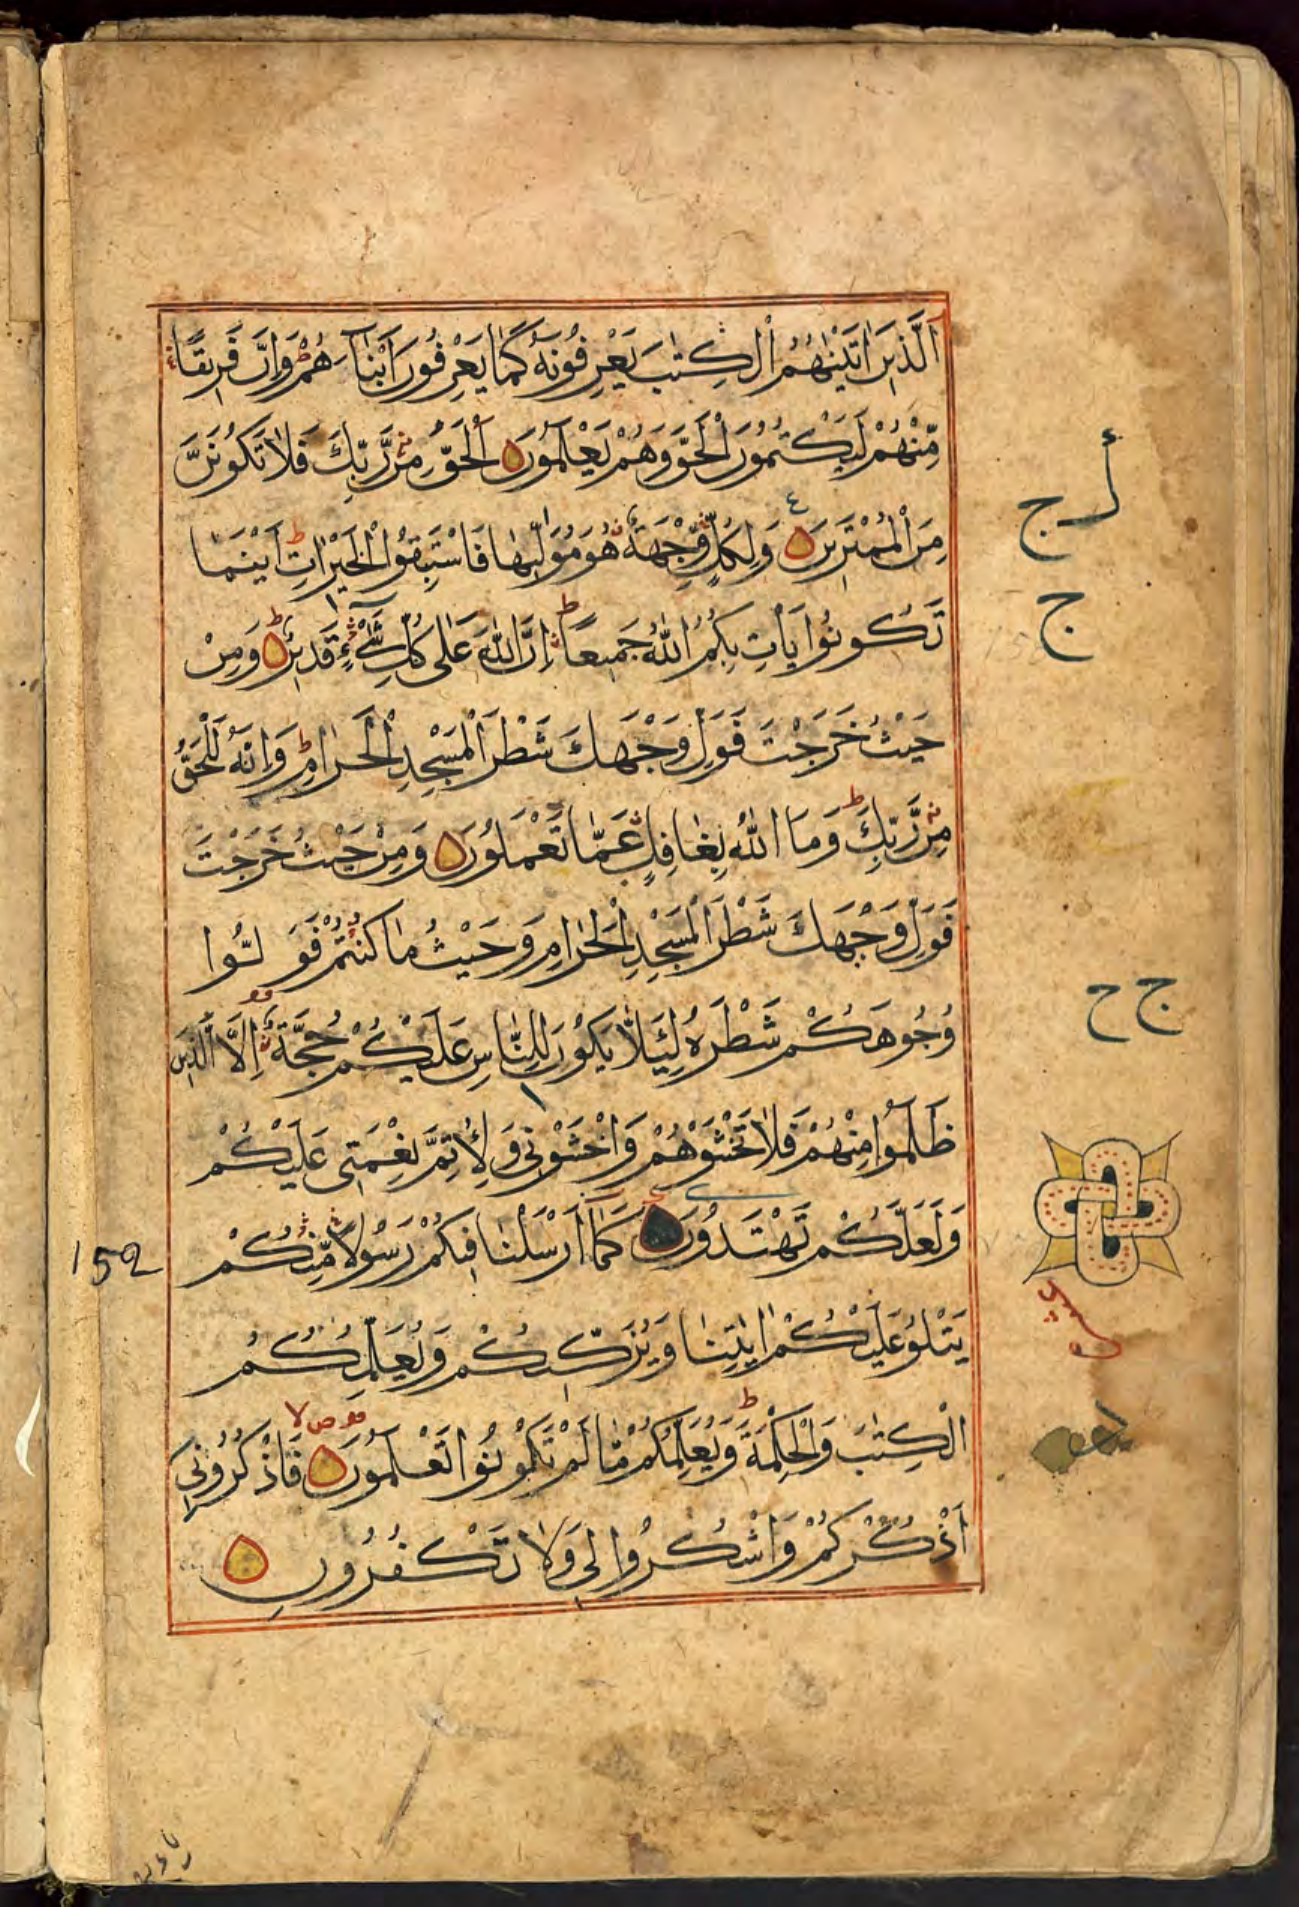 اَلَّذِيْنَ اٰتَيْنٰهُمُ الْكِتٰبَ يَعْرِفُوْنَهٗ كَمَا يَعْرِفُوْنَ اَبْنَآءَهُمْ وَاِنَّ فَرِيْقًا
مِّنْهُمْ لَيَكْتُمُوْنَ الْحَقَّ وَهُمْ يَعْلَمُوْنَ اَلْحَقُّ مِنْ رَّبِّكَ فَلَا تَكُوْنَنَّ
مِنَ الْمُمْتَرِيْنَ وَلِكُلٍّ وِّجْهَةٌ هُوَ مُوَلِّيْهَا فَاسْتَبِقُوا الْخَيْرَاتِ اَيْنَمَا
تَكُوْنُوْا يَاْتِ بِكُمُ اللّٰهُ جَمِيْعًا اِنَّ اللّٰهَ عَلٰى كُلِّ شَيْءٍ قَدِيْرٌ وَمِنْ
حَيْثُ خَرَجْتَ فَوَلِّ وَجْهَكَ شَطْرَ الْمَسْجِدِ الْحَرَامِ وَاِنَّهٗ لَلْحَقُّ
مِنْ رَّبِّكَ وَمَا اللّٰهُ بِغَافِلٍ عَمَّا تَعْمَلُوْنَ وَمِنْ حَيْثُ خَرَجْتَ
فَوَلِّ وَجْهَكَ شَطْرَ الْمَسْجِدِ الْحَرَامِ وَحَيْثُ مَا كُنْتُمْ فَوَلُّوْا
وُجُوْهَكُمْ شَطْرَهٗ لِئَلَّا يَكُوْنَ لِلنَّاسِ عَلَيْكُمْ حُجَّةٌ اِلَّا الَّذِيْنَ
ظَلَمُوْا مِنْهُمْ فَلَا تَخْشَوْهُمْ وَاخْشَوْنِيْ وَلِاُتِمَّ نِعْمَتِيْ عَلَيْكُمْ
وَلَعَلَّكُمْ تَهْتَدُوْنَ كَمَآ اَرْسَلْنَا فِيْكُمْ رَسُوْلًا مِّنْكُمْ
يَتْلُوْا عَلَيْكُمْ اٰيٰتِنَا وَيُزَكِّيْكُمْ وَيُعَلِّمُكُمُ
الْكِتٰبَ وَالْحِكْمَةَ وَيُعَلِّمُكُمْ مَّا لَمْ تَكُوْنُوْا تَعْلَمُوْنَ فَاذْكُرُوْنِيْ
اَذْكُرْكُمْ وَاشْكُرُوْا لِيْ وَلَا تَكْفُرُوْنِ
ج
ج ح
152